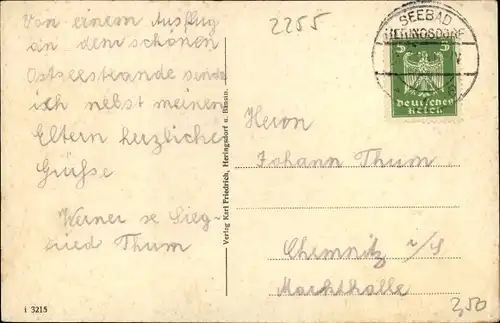 Von einem Ausflug
an dem schönen
Ostseestrande sende
ich nebst meinen
Eltern herzliche
Grüße
Werner se Sieg-
fried Thum
2255
SEEBAD
HERINGSDORF
5 5
Deutsches
Reich
Herrn
Johann Thum
Chemnitz i/S
Markthalle
Verlag Karl Friedrich, Heringsdorf u. Bansin.
i 3215
2,50